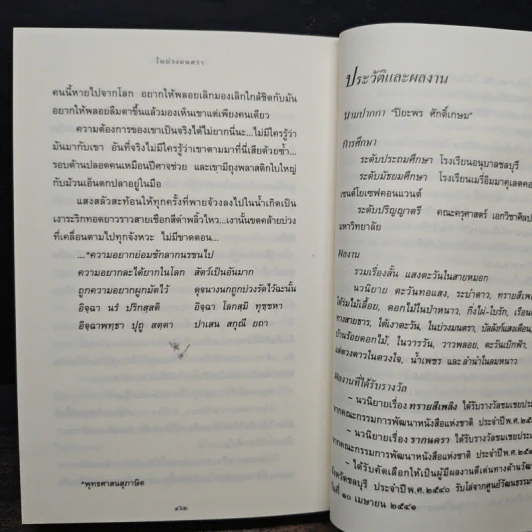 ในบ่วงมนตรา
คนนี้หายไปจากโลก อยากให้พลอยเลิกมองเลิกใกล้ชิดกับมัน
อยากให้พลอยลืมตาขึ้นแล้วมองเห็นเขาแต่เพียงคนเดียว
ความต้องการของเขาเป็นจริงได้ไม่ยากนี่นะ...ไม่มีใครรู้ว่า
มันมากับเขา อันที่จริงไม่มีใครรู้ว่าเขาตามมาที่นี่เสียด้วยซ้ำ...
รอบด้านปลอดคนเหมือนปีศาจช่วย และเขามีถุงพลาสติกใบใหญ่
กับม้วนเอ็นตกปลาอยู่ในมือ
แสงสลัวสะท้อนให้ทุกครั้งที่พายจ้วงลงไปในน้ำเกิดเป็น
เงาระริกทอดยาวราวสายเชือกสีดำพลิ้วไหว...เงานั้นขดคล้ายบ่วง
ที่เคลื่อนตามไปทุกจังหวะ ไม่มีขาดตอน...
...*ความอยากย่อมชักลากนรชนไป
ความอยากละได้ยากในโลก สัตว์เป็นอันมาก
ถูกความอยากผูกมัดไว้ ดุจนางนกถูกบ่วงรัดไว้ฉะนั้น
อิจฺฉา นรํ ปริกสฺสติ อิจฺฉา โลกสฺมิ ทุชฺชหา
อิจฺฉาพทฺธา ปุถู สตฺตา ปาเสน สกุณี ยถา
*พุทธศาสนสุภาษิต
๔๖๒
ประวัติและผลงาน
นามปากกา "ปิยะพร ศักดิ์เกษม"
การศึกษา
ระดับประถมศึกษา โรงเรียนอนุบาลชลบุรี
ระดับมัธยมศึกษา โรงเรียนเมรี่อิมมาคูเลตคอ
เซนต์โยเซฟคอนแวนต์
ระดับปริญญาตรี คณะครุศาสตร์ เอกวิชาศิลป
มหาวิทยาลัย
ผลงาน
รวมเรื่องสั้น แสงตะวันในสายหมอก
นวนิยาย ตะวันทอแสง, ระบำดาว, ทรายสีเพลิง
ใต้ร่มไม้เลื้อย, ดอกไม้ในป่าหนาว, กิ่งไผ่-ใบรัก, เรือน
ทางสายธาร, ใต้เงาตะวัน, ในบ่วงมนตรา, บัลลังก์แสงเดือน,
บ้านร้อยดอกไม้, ในวารวัน, วาวพลอย, ตะวันเบิกฟ้า,
แต่ดวงดาวในดวงใจ, น้ำเพชร และ ลำนำในลมหนาว
ผลงานที่ได้รับรางวัล
– นวนิยายเรื่อง ทรายสีเพลิง ได้รับรางวัลชมเชยประ
จากคณะกรรมการพัฒนาหนังสือแห่งชาติ ประจำปีพ.ศ.๒๕
– นวนิยายเรื่อง รากนครา ได้รับรางวัลชมเชยประเ
จากคณะกรรมการพัฒนาหนังสือแห่งชาติ ประจำปีพ.ศ.๒๕
– ได้รับคัดเลือกให้เป็นผู้มีผลงานดีเด่นทางด้านวัฒ
จังหวัดชลบุรี ประจำปีพ.ศ.๒๕๔๐ รับโล่จากศูนย์วัฒนธรรม
วันที่ ๑๐ เมษายน ๒๕๔๑